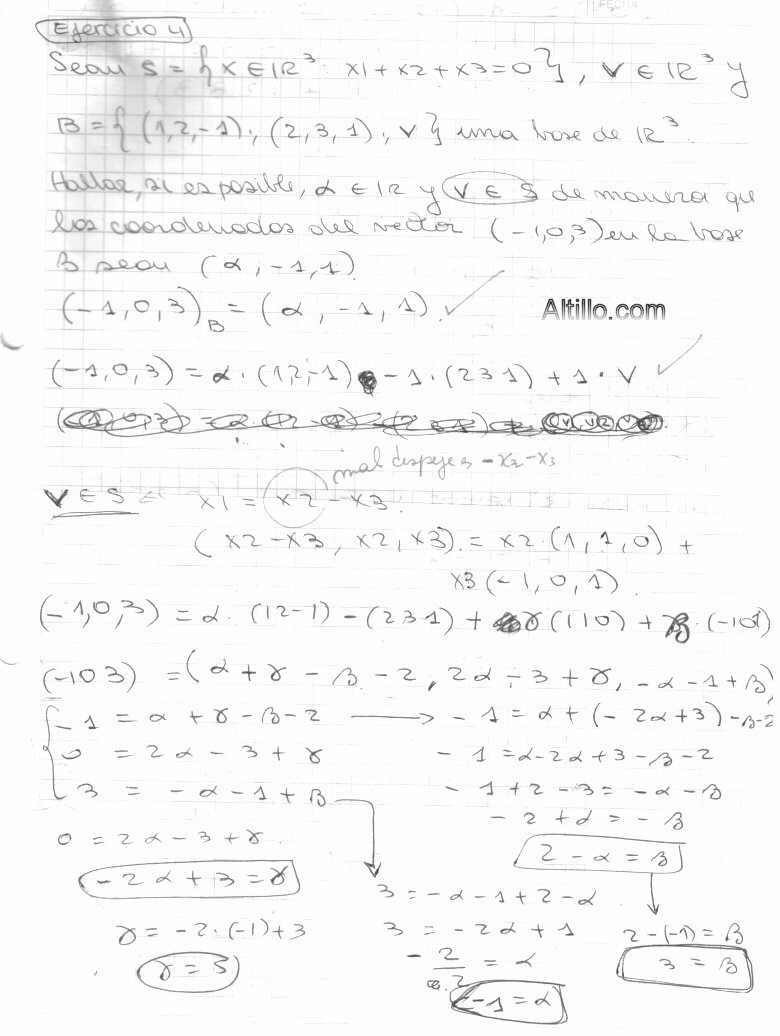 Ejercicio 4
Sean S = { X ∈ IR³ x1 + x2 + x3 = 0 }, V ∈ IR³ y
B = { (1,2,-1); (2,3,1); V } una base de IR³.
Hallar, si es posible, α ∈ IR y V ∈ S de manera que
las coordenadas del vector (-1,0,3) en la base
B sean (α, -1, 1)
(-1,0,3)B = (α, -1, 1).
Altillo.com
(-1,0,3) = α · (1,2,-1) - 1 · (2 3 1) + 1 · V
mal despejes -x2-x3
V ∈ S x1 = x2 - x3.
(x2-x3, x2, x3) = x2 · (1,1,0) +
x3 (-1,0,1)
(-1,0,3) = α · (1 2 -1) - (2 3 1) + γ (1 1 0) + β · (-1 0 1)
(-1 0 3) = (α + γ - β - 2, 2α - 3 + γ, -α - 1 + β)
-1 = α + γ - β - 2 → -1 = α + (-2α + 3) - β - 2
0 = 2α - 3 + γ -1 = α - 2α + 3 - β - 2
3 = -α - 1 + β -1 + 2 - 3 = -α - β
-2 + α = -β
0 = 2α - 3 + γ
2 - α = β
-2α + 3 = γ
3 = -α - 1 + 2 - α
γ = -2 · (-1) + 3 3 = -2α + 1 2 - (-1) = β
γ = 5 -2/2 = α 3 = β
-1 = α